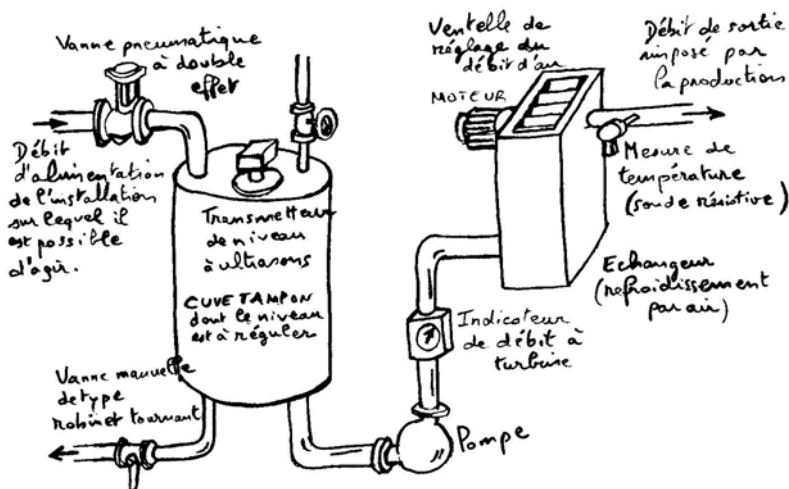 Vanne pneumatique
à double
effet
Débit
d'alimentation
de l'installation
sur lequel il
est possible
d'agir.
Transmetteur
de niveau
à ultrasons
CUVE TAMPON
dont le niveau
est à réguler
Vanne manuelle
de type
robinet tournant
Pompe
Indicateur
de débit à
turbine
Ventelle de
réglage du
débit d'air
MOTEUR
Débit de sortie
imposé par
la production
Mesure de
température
(sonde résistive)
Echangeur
(refroidissement
par air)